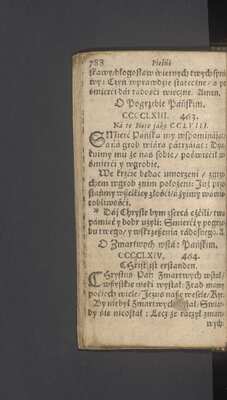 788 Pieśni
ſkawy: błogoſław wiernych twych ſpra
wy: Czyń wprawdzie ſtateczne/ a po
śmierći dáć rádośći wieczne. Amen.
O Pogrzebie Páńſkim.
CCCCLXIII. 463.
Ná tę Notę jáko CCLVIII.
SMierć Páńſką my wſpominájąc
á ná grob wiárą pátrzájąc: Dzię
kuimy mu że nas ſobie/ poświęćił w
śmierći y wgrobie.
We krzćie będąc umorzeni/ zgrzy
chem wgrob znim położeni: Już prze
ſtáńmy wſzelkiey złośći/ á żyimy wświą
tobliwośći.
* Dáj Chryſte byśm ſzcerá czćili/ twą
pámięć y dobr użyli: Smierći y pogrze
bu twego/ y wſkrzeſzenia rádoſnego. A.
O Zmartwych wſtá: Páńſkim.
CCCCLXIV. 464.
CHriſt iſt erſtanden.
CHryſtus Pan Zmartwych wſtał/
wſzyſkie węki wyſtał: Ztąd mamy
poćiech wiele/ Jezus náſze weſele/ Kyr:
By nie był Zmartwych wſtał/ Swiat
by śię nieoſtał: Lecz że ráczył zmar-
wych